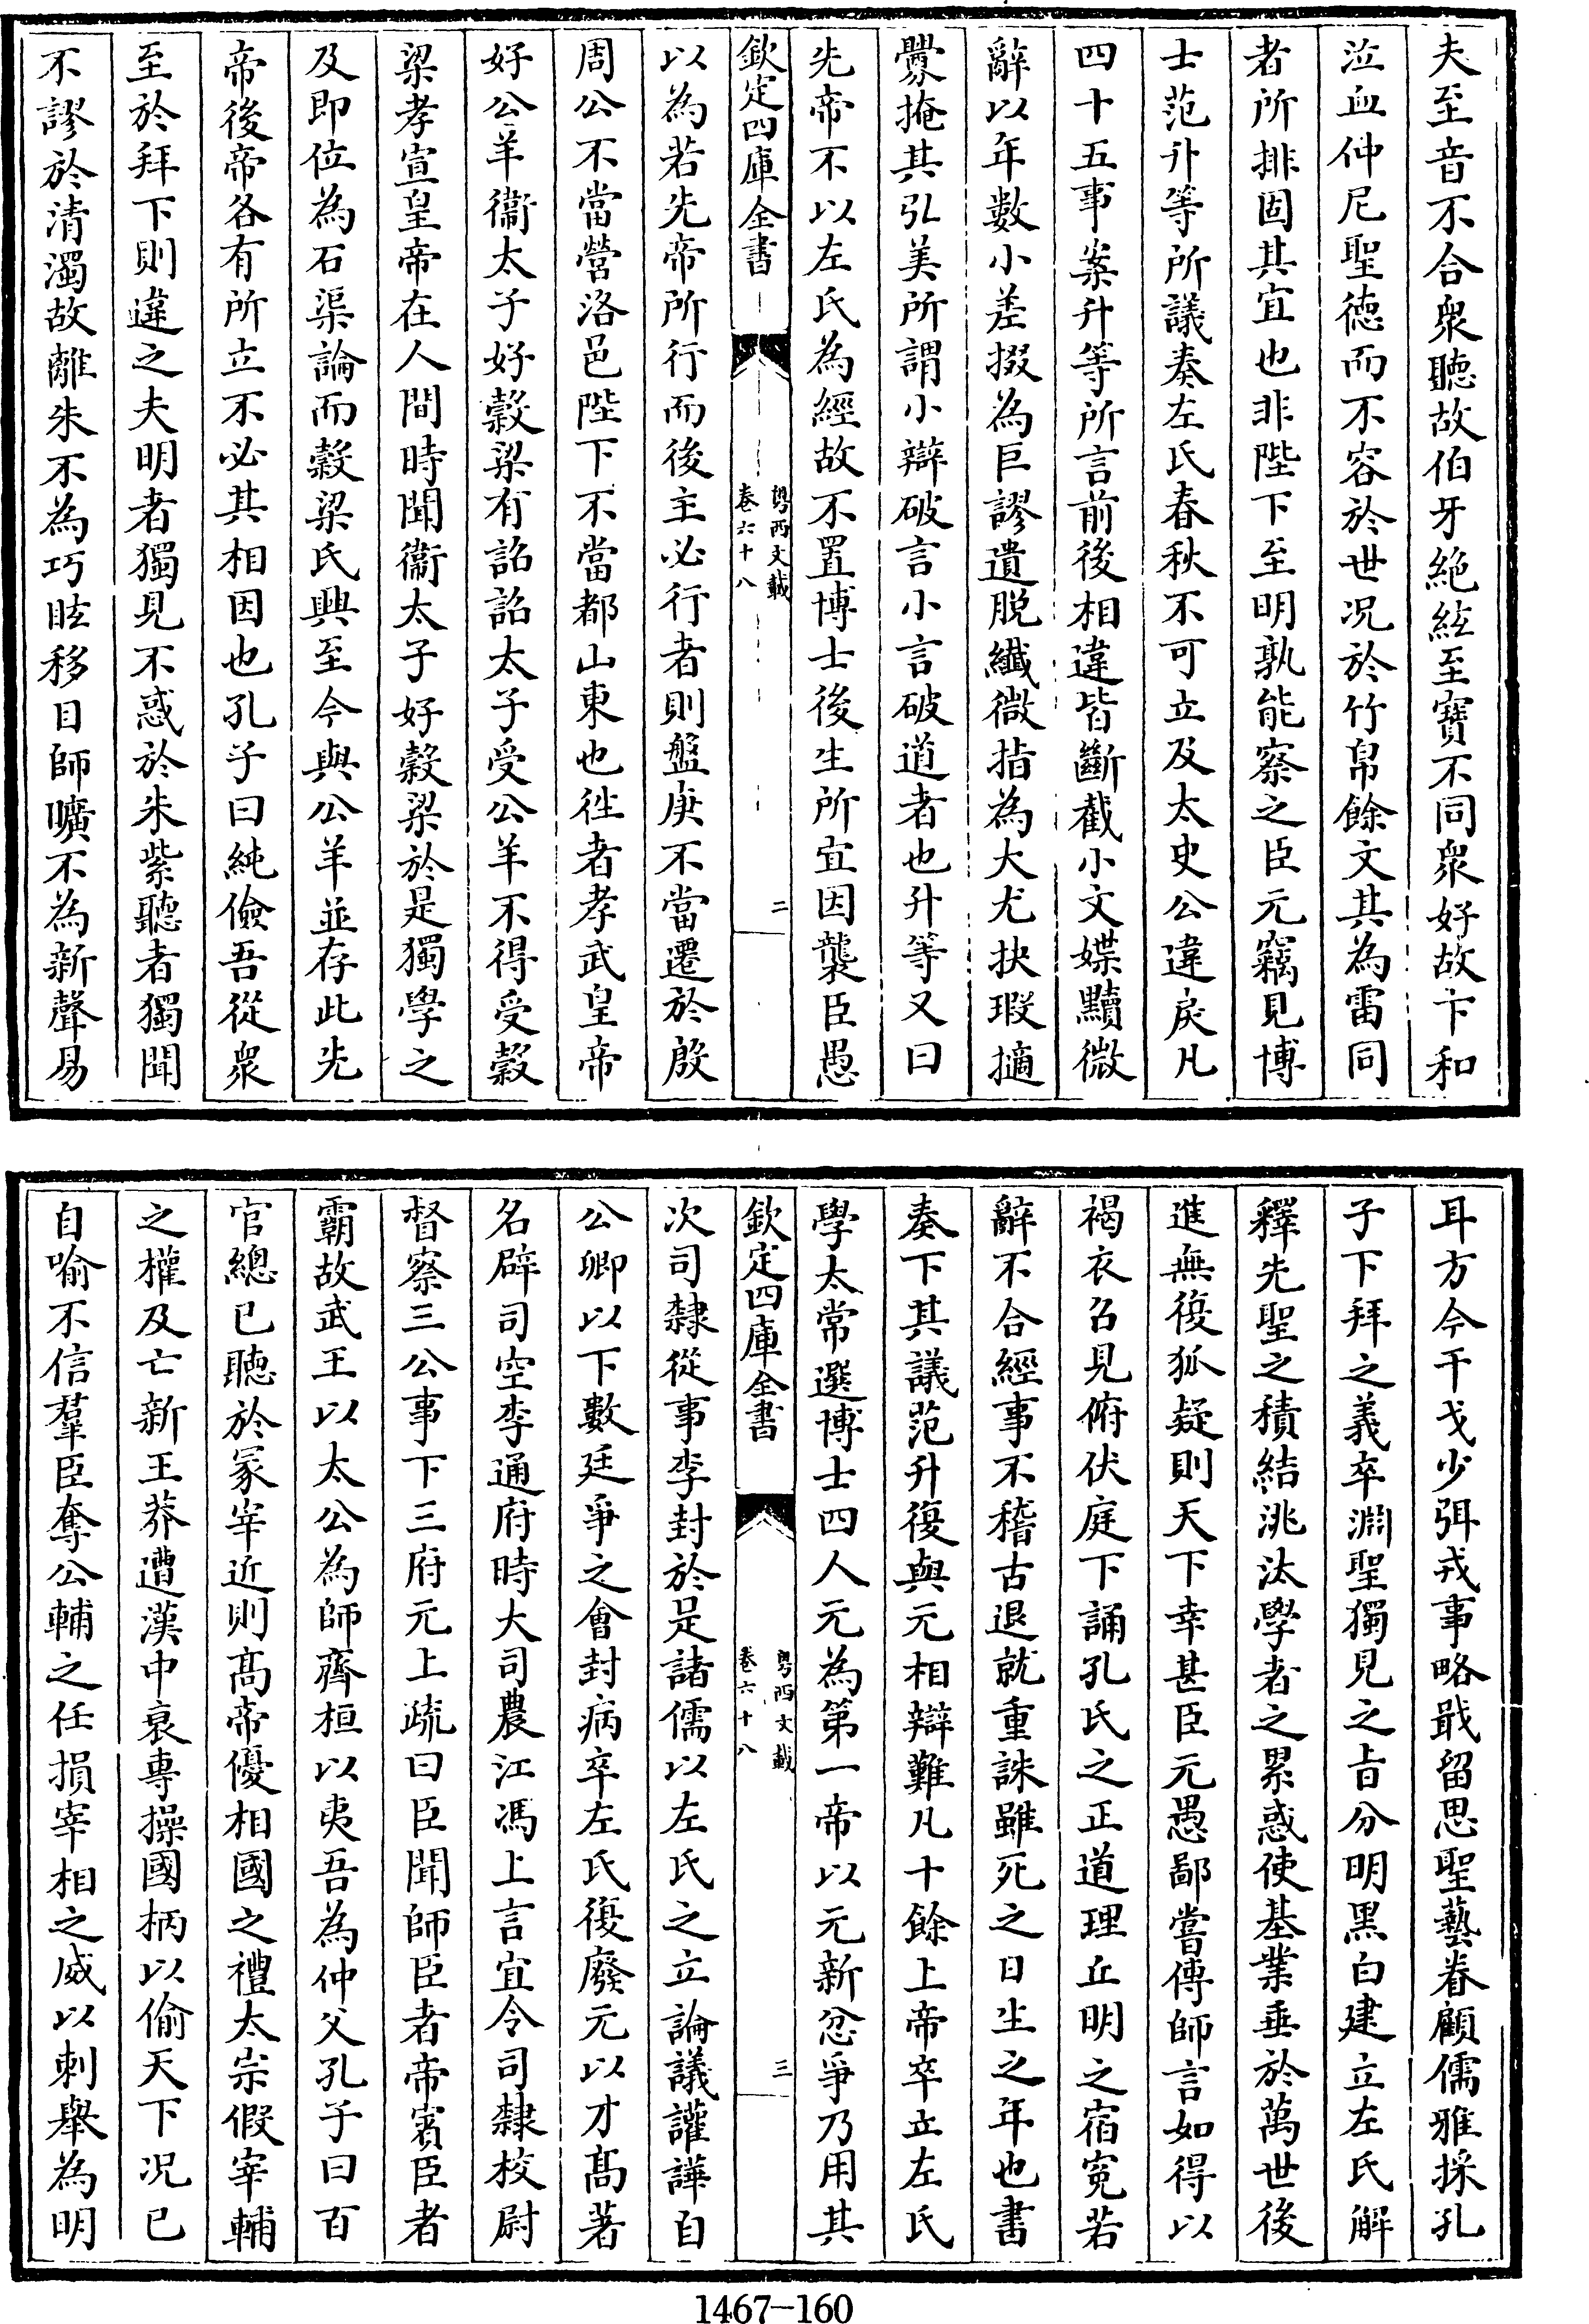 夫至音不合衆聽故伯牙絶絃至寶不同衆好故卞和
泣血仲尼聖徳而不容於世况於竹帛餘文其為雷同
者所排固其宜也非陛下至明孰能察之臣元竊見博
士范升等所議奏左氏春秋不可立及太史公違戾凡
四十五事案升等所言前後相違皆斷截小文媟黷微
辭以年數小差掇為巨謬遺脱纎微指為大尤抉瑕擿
釁掩其弘美所謂小辯破言小言破道者也升等又曰
先帝不以左氏為經故不置博士後生所宜因襲臣愚
欽定四庫全書
粤西文載
卷六十八
二
以為若先帝所行而後主必行者則盤庚不當遷於殷
周公不當營洛邑陛下不當都山東也徃者孝武皇帝
好公羊衞太子好穀梁有詔詔太子受公羊不得受穀
梁孝宣皇帝在人間時聞衞太子好穀梁於是獨學之
及即位為石渠論而穀梁氏興至今與公羊並存此先
帝後帝各有所立不必其相因也孔子曰純儉吾從衆
至於拜下則違之夫明者獨見不惑於朱紫聽者獨聞
不謬於清濁故離朱不為巧眩移目師曠不為新聲易
耳方今干戈少弭戎事略戢留思聖藝眷顧儒雅採孔
子下拜之義卒淵聖獨見之旨分明黒白建立左氏解
釋先聖之積結洮汰學者之累惑使基業垂於萬世後
進無復狐疑則天下幸甚臣元愚鄙嘗傳師言如得以
褐衣召見俯伏庭下誦孔氏之正道理丘明之宿寃若
辭不合經事不稽古退就重誅雖死之日生之年也書
奏下其議范升復與元相辯難凡十餘上帝卒立左氏
學太常選博士四人元為第一帝以元新忿爭乃用其
欽定四庫全書
粤西文載
卷六十八
三
次司隸從事李封於是諸儒以左氏之立論議讙譁自
公卿以下數廷爭之會封病卒左氏復廢元以才髙著
名辟司空李通府時大司農江馮上言宜令司隸校尉
督察三公事下三府元上疏曰臣聞師臣者帝賓臣者
霸故武王以太公為師齊桓以夷吾為仲父孔子曰百
官總已聽於冢宰近則髙帝優相國之禮太宗假宰輔
之權及亡新王莽遭漢中衰專操國柄以偷天下况已
自喻不信羣臣奪公輔之任損宰相之威以刺舉為明
1467-160